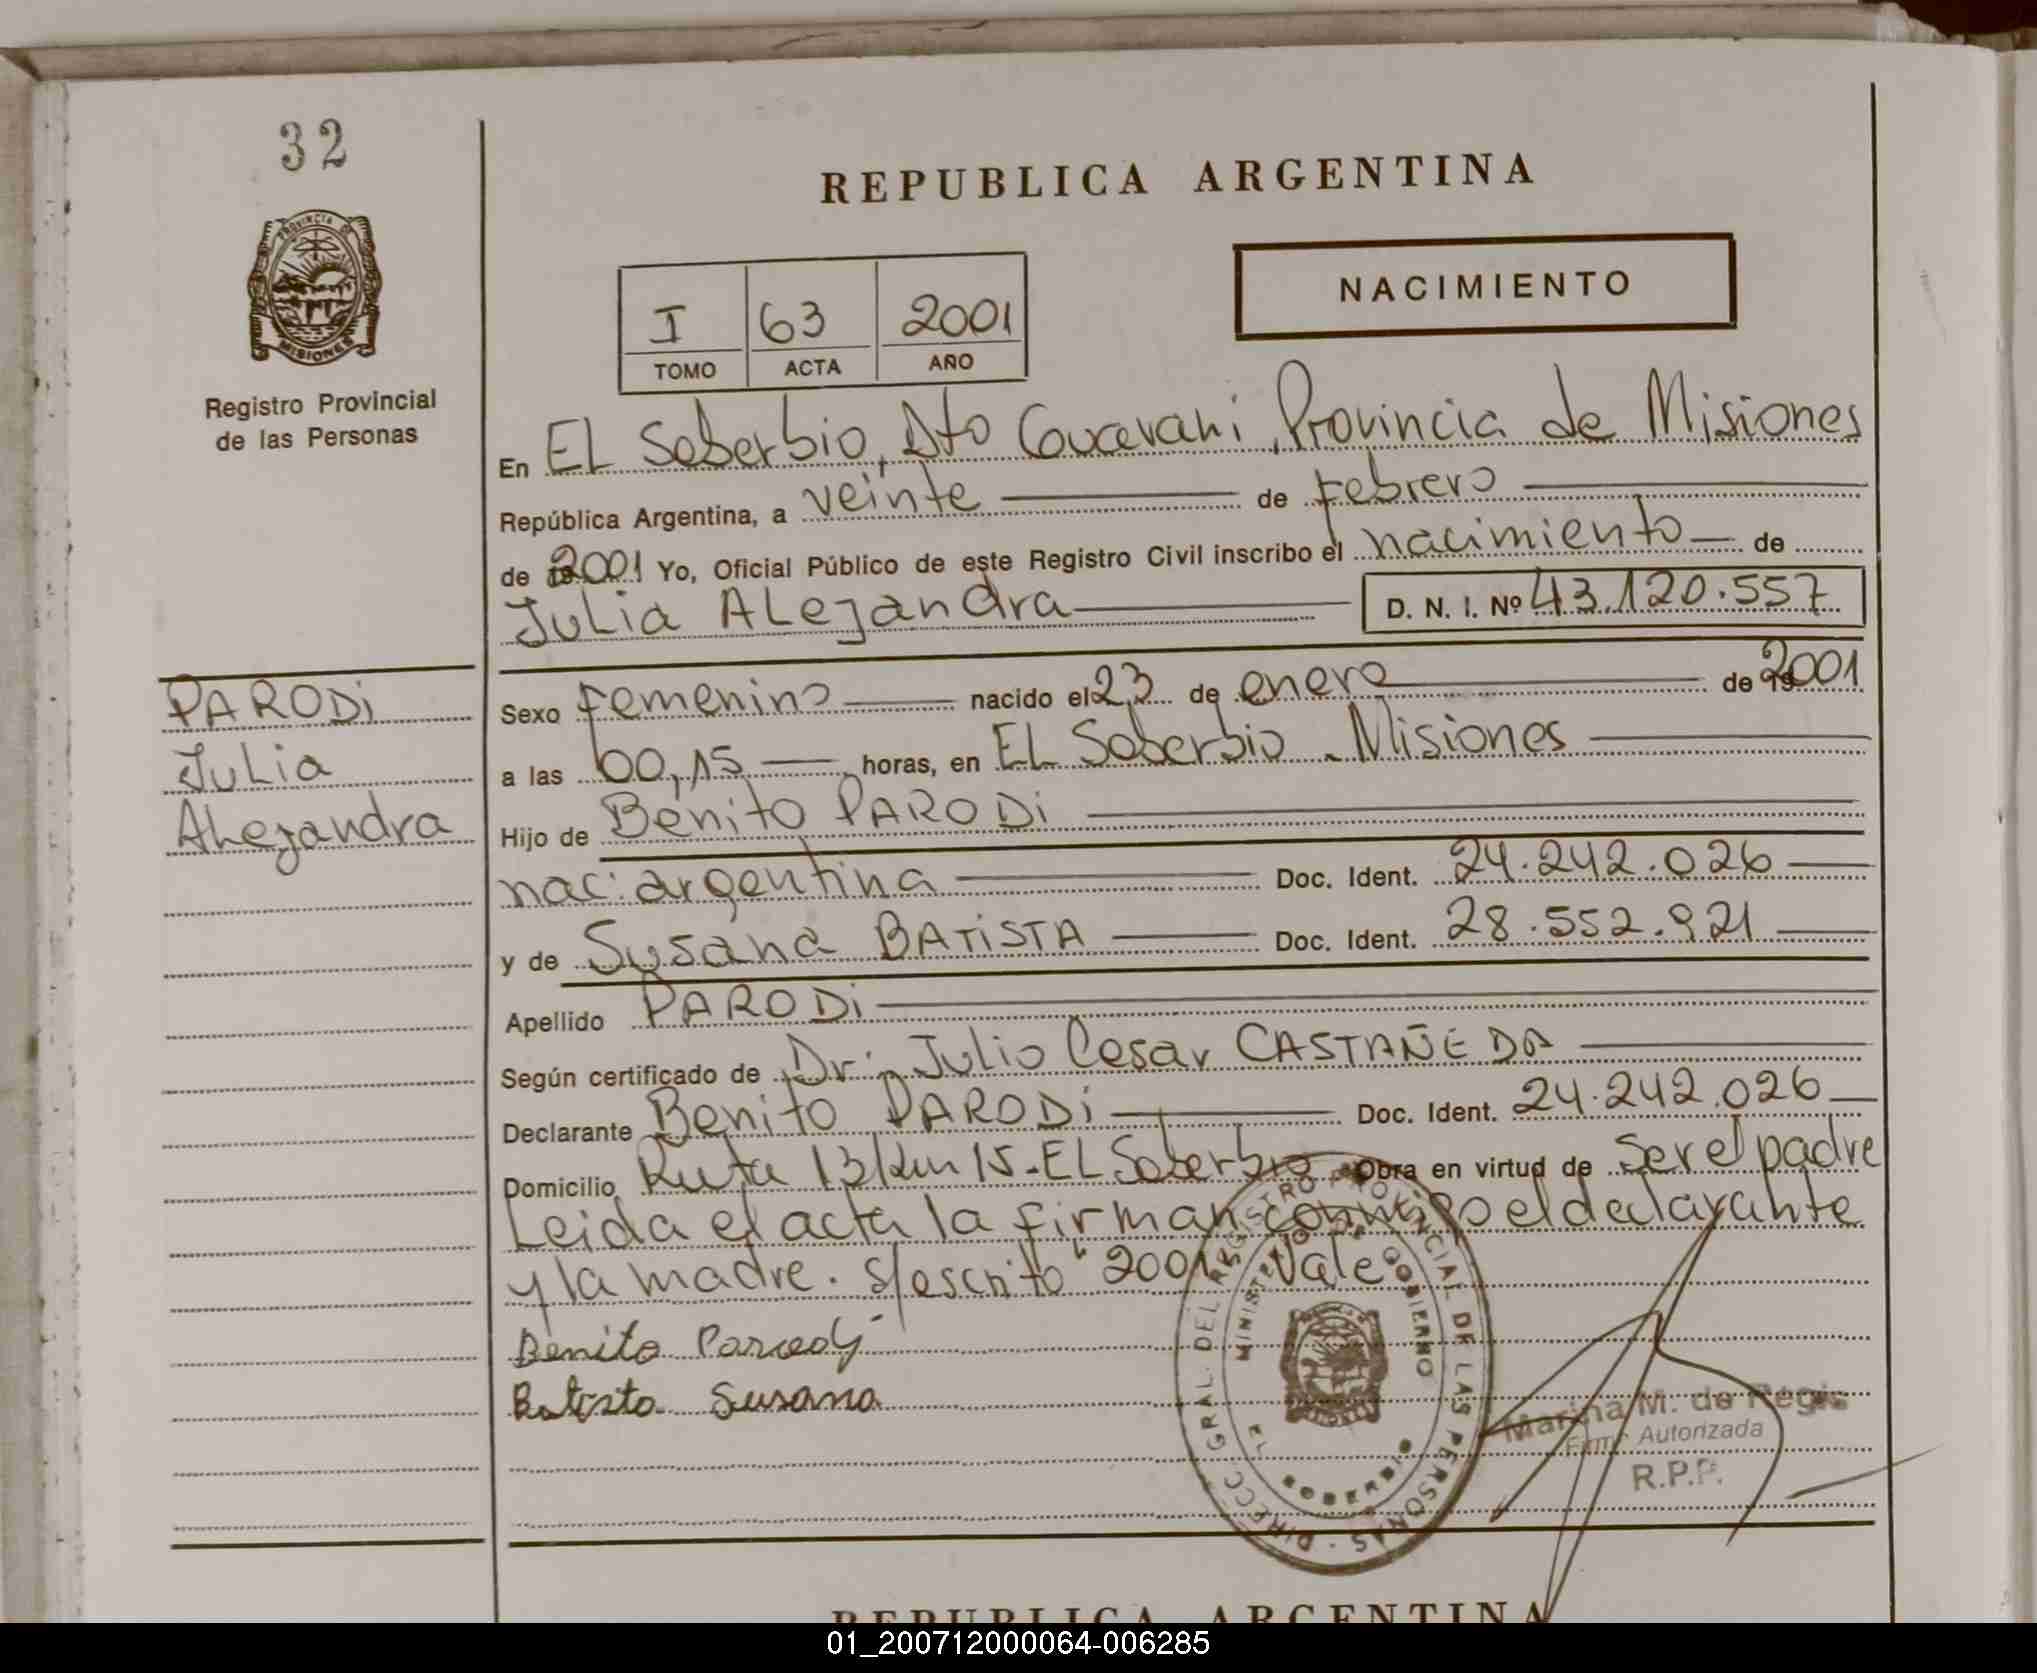 32
REPUBLICA ARGENTINA
PROVINCIA DE
MISIONES
Registro Provincial
de las Personas
NACIMIENTO
I 63 2001
TOMO ACTA AÑO
En EL Soberbio, Dto Guaraní, Provincia de Misiones
República Argentina, a veinte de Febrero
de 2001 Yo, Oficial Público de este Registro Civil inscribo el nacimiento de
Julia ALejandra D. N. I. Nº 43.120.557
PARODi
Julia
ALejandra
Sexo Femenino nacido el 23 de enero de 2001
a las 00,15 horas, en EL Soberbio - Misiones
Hijo de Benito PARODi
nac: argentina Doc. Ident. 24.242.026
y de Susana BATiSTA Doc. Ident. 28.552.921
Apellido PARODi
Según certificado de Dr: Julio Cesar CASTAÑEDA
Declarante Benito PARODi Doc. Ident. 24.242.026
Domicilio Ruta 13 Km 15 - EL Soberbio Obra en virtud de ser el padre
Leida el acta la firman conmigo el declarante
y la madre. s/escrito "2001" Vale
Benito Parodi
Batista Susana
DIRECC. GRAL. DEL REGISTRO PROVINCIAL DE LAS PERSONAS
MINISTERIO DE GOBIERNO
EL SOBERBIO
Marina M. de Regis
Firma Autorizada
R.P.P.
REPUBLICA ARGENTINA
01_200712000064-006285